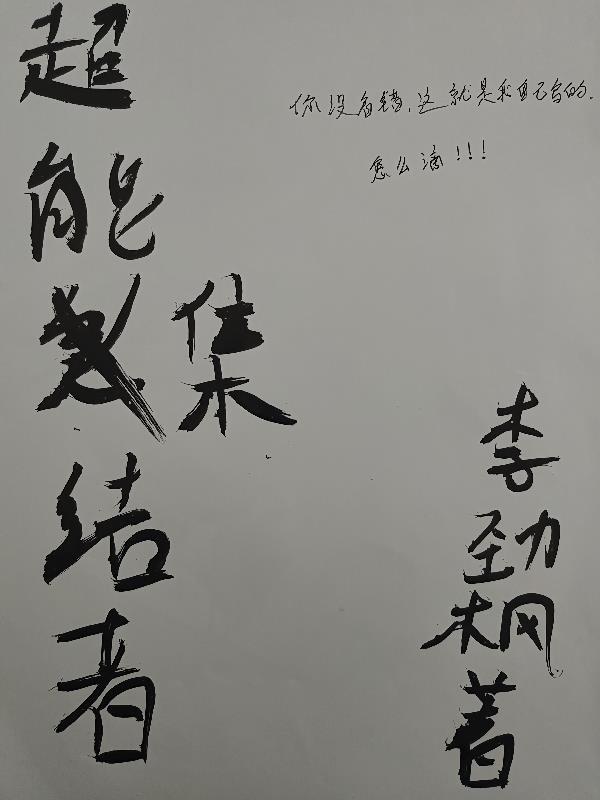 超能集结者
你没看错，这就是我自己写的.
怎么滴!!!
李劲枫著